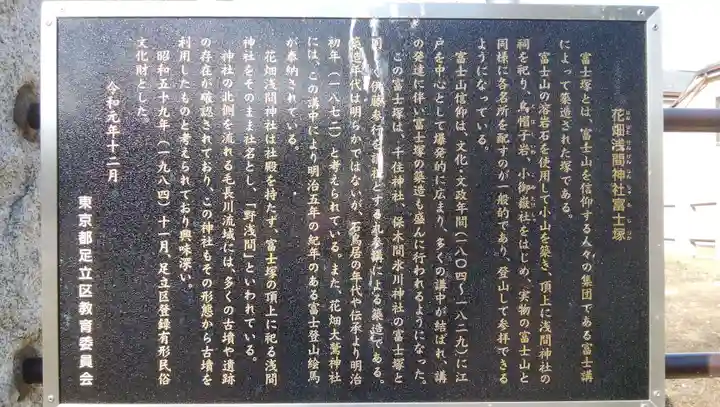 花畑浅間神社富士塚
富士塚とは、富士山を信仰する人々の集団である富士講
によって築造された塚である。
富士山の溶岩石を使用して小山を築き、頂上に浅間神社の
祠を祀り、烏帽子岩、小御嶽社をはじめ、実物の富士山と
同様に各名所を配すのが一般的であり、登山して参拝できる
ようになっている。
富士山信仰は、文化・文政年間(一八〇四〜一八二九)に江
戸を中心として爆発的に広まり、多くの講中が結ばれ、講
の発達に伴い富士塚の築造も盛んに行われるようになった。
この富士塚は、千住神社、保木間氷川神社の富士塚と
同じく伊藤参行を講祖とする丸参講による築造である。
築造年代は明らかではないが、石鳥居の年代や伝承より明治
初年(一八七二)と考えられている。また、花畑大鷲神社
には、この講中により明治五年の紀年のある富士登山絵馬
が奉納されている。
花畑浅間神社は社殿を持たず、富士塚の頂上に祀る浅間
神社をそのまま社名とし、「野浅間」といわれている。
神社の北側を流れる毛長川流域には、多くの古墳や遺跡
の存在が確認されており、この神社もその形態から古墳を
利用したものと考えられており興味深い。
昭和五十九年(一九八四)十一月、足立区登録有形民俗
文化財とした。
令和元年十二月
東京都足立区教育委員会